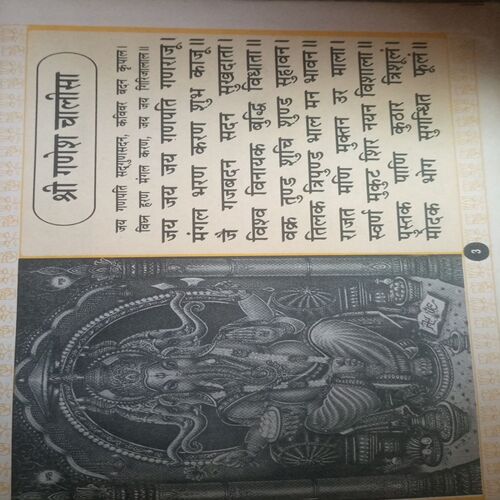 श्री गणेश चालीसा
जय गणपति सद्गुणसदन, कविवर बदन कृपाल।
विघ्न हरण मंगल करण, जय जय गिरिजालाल॥
जय जय जय गणपति गणराजू।
मंगल भरण करण शुभ काजू॥
जै गजबदन सदन सुखदाता।
विश्व विनायक बुद्धि विधाता॥
वक्र तुण्ड शुचि शुण्ड सुहावन।
तिलक त्रिपुण्ड भाल मन भावन॥
राजत मणि मुक्तन उर माला।
स्वर्ण मुकुट शिर नयन विशाला॥
पुस्तक पाणि कुठार त्रिशूलं।
मोदक भोग सुगन्धित फूलं॥
3